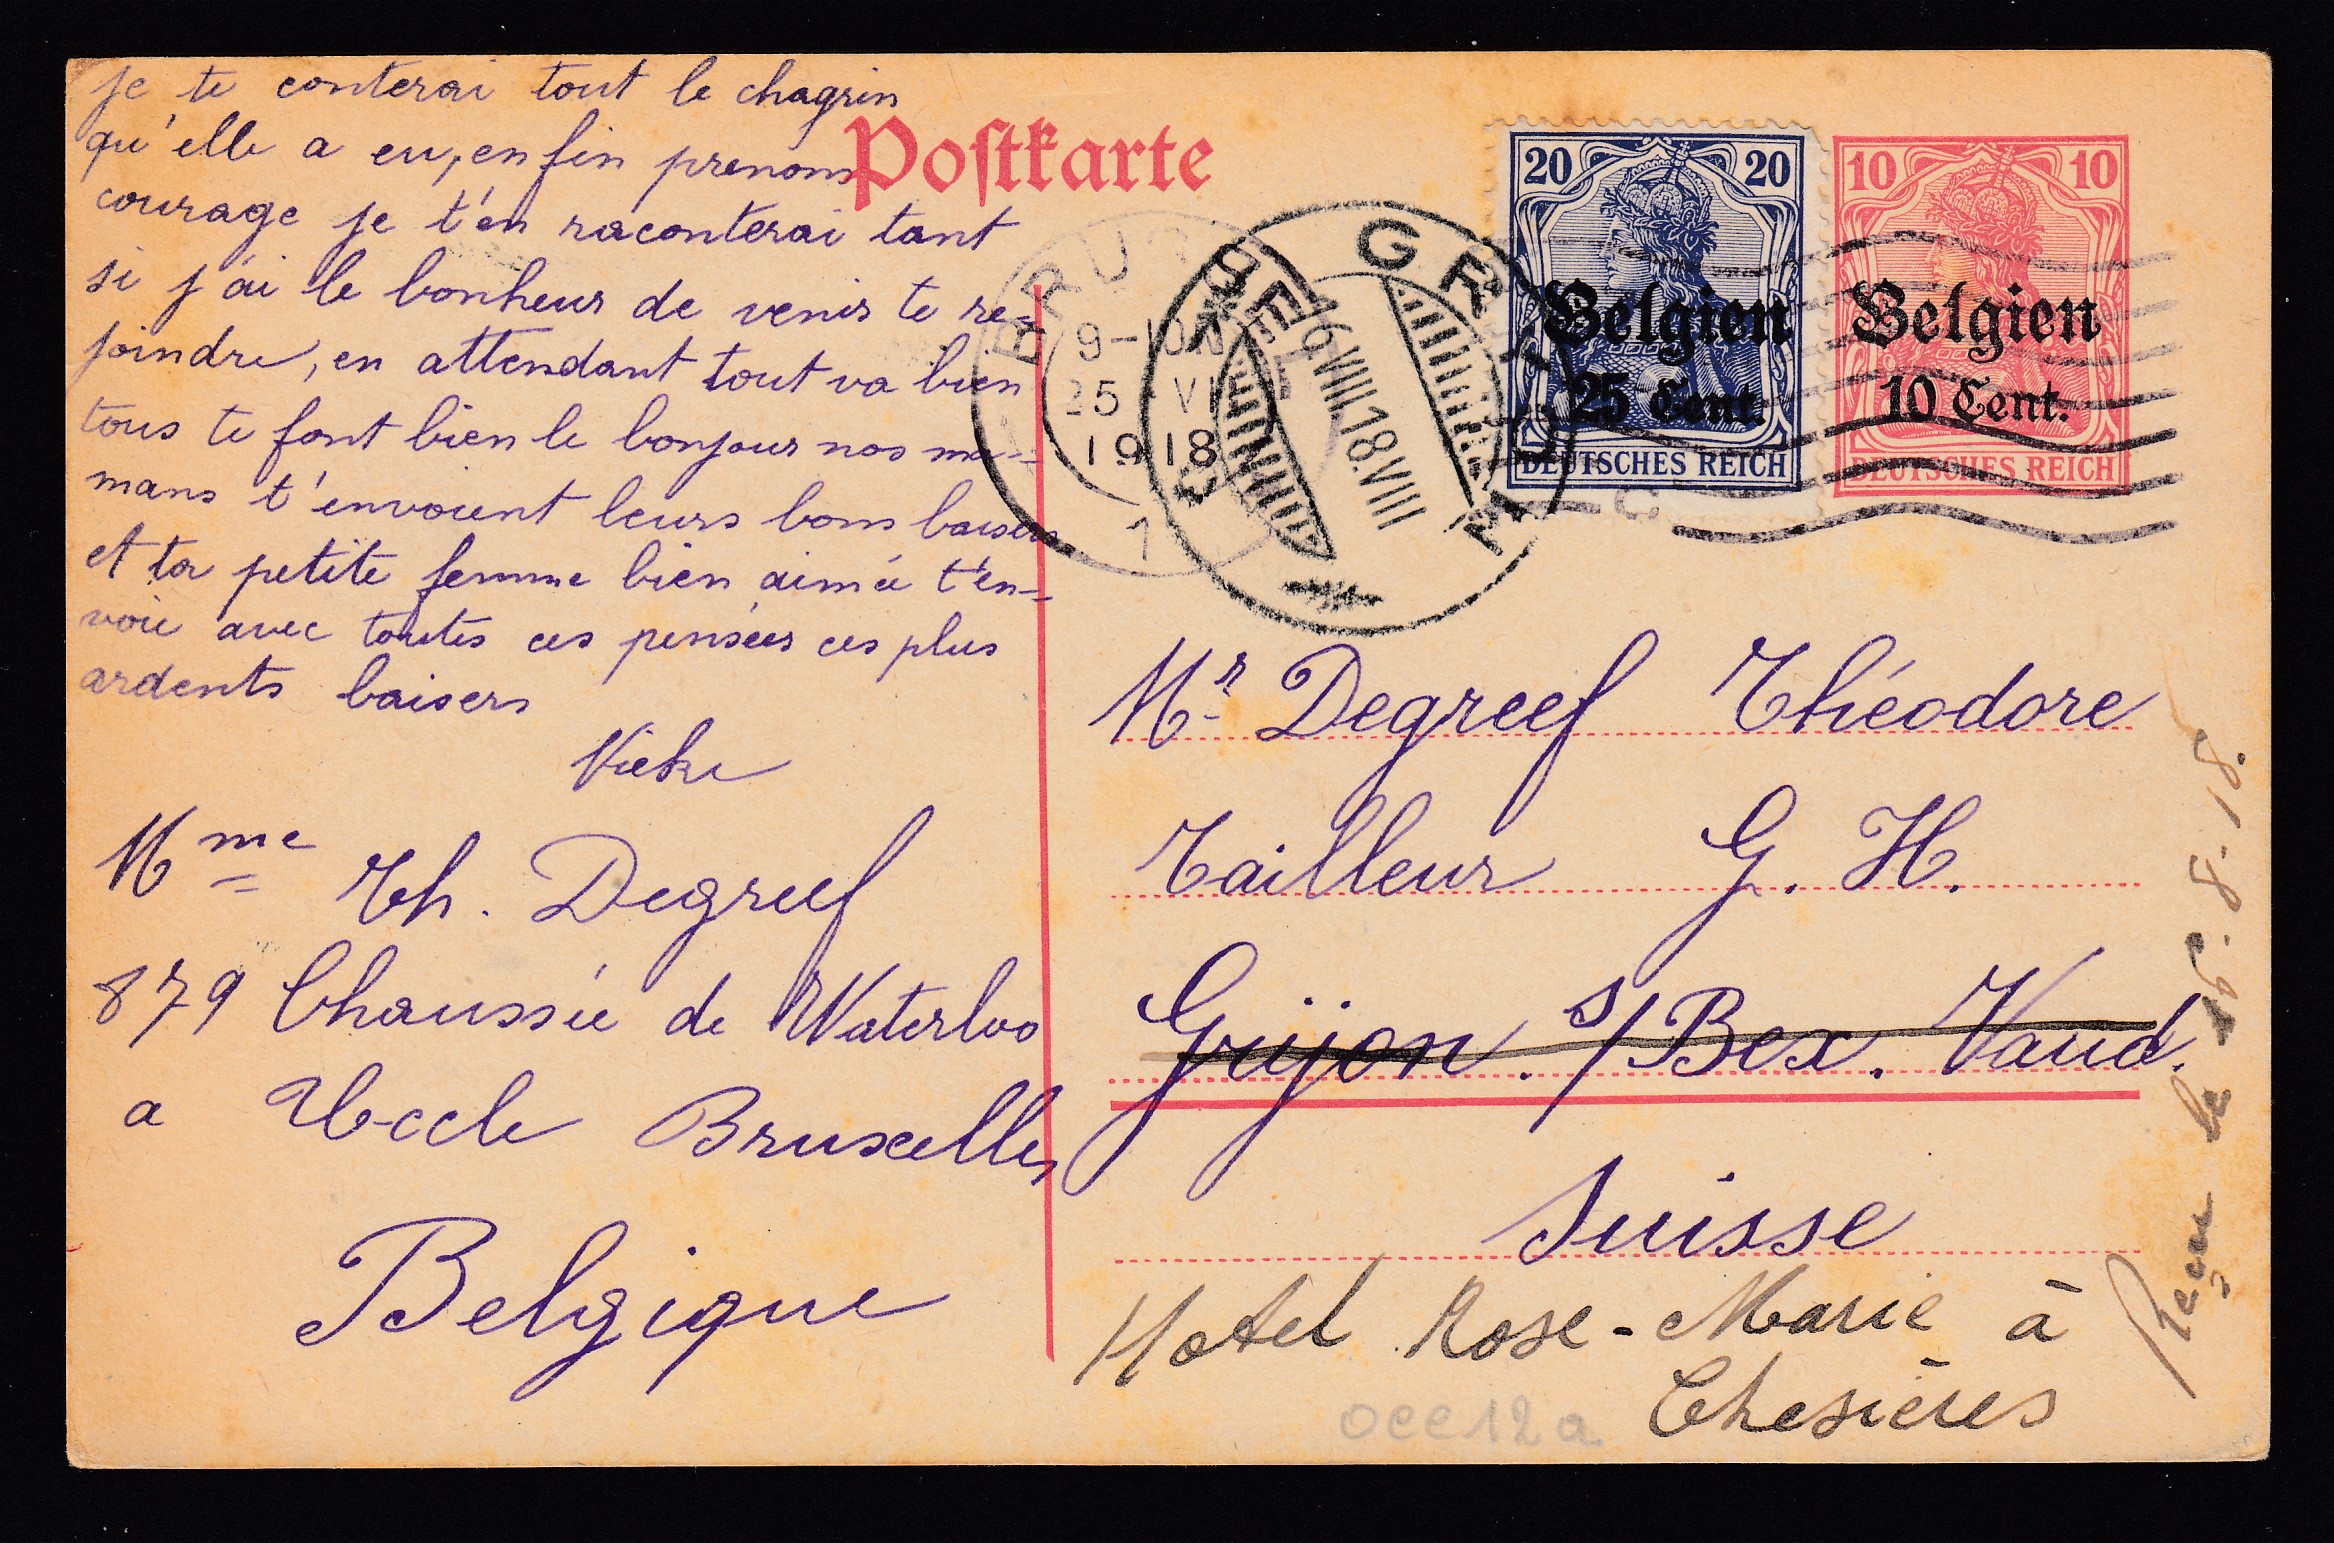 je te conterai tout le chagrin
qu'elle a eu, enfin prenons
courage je t'en raconterai tant
si j'ai le bonheur de venir te re-
joindre, en attendant tout va bien
tous te font bien le bonjour nos ma-
mans t'envoient leurs bons baisers
et ta petite femme bien aimée t'en-
voie avec toutes ces pensées ces plus
ardents baisers
Mme Th. Degreef
879 Chaussée de Waterloo
a Uccle Bruxelles
Belgique
Postkarte
20 20
Belgien
25 Cent.
DEUTSCHES REICH
10 10
Belgien
10 Cent.
DEUTSCHES REICH
9-10
25 VI
1918
1
6 VIII.18.VIII
Mr Degreef Théodore
Tailleur G. H.
Grijon. s/Bex. Vaud.
Suisse
Hotel Rose-Marie à
Chesières
occ12a
Reçue le 16-8-18.